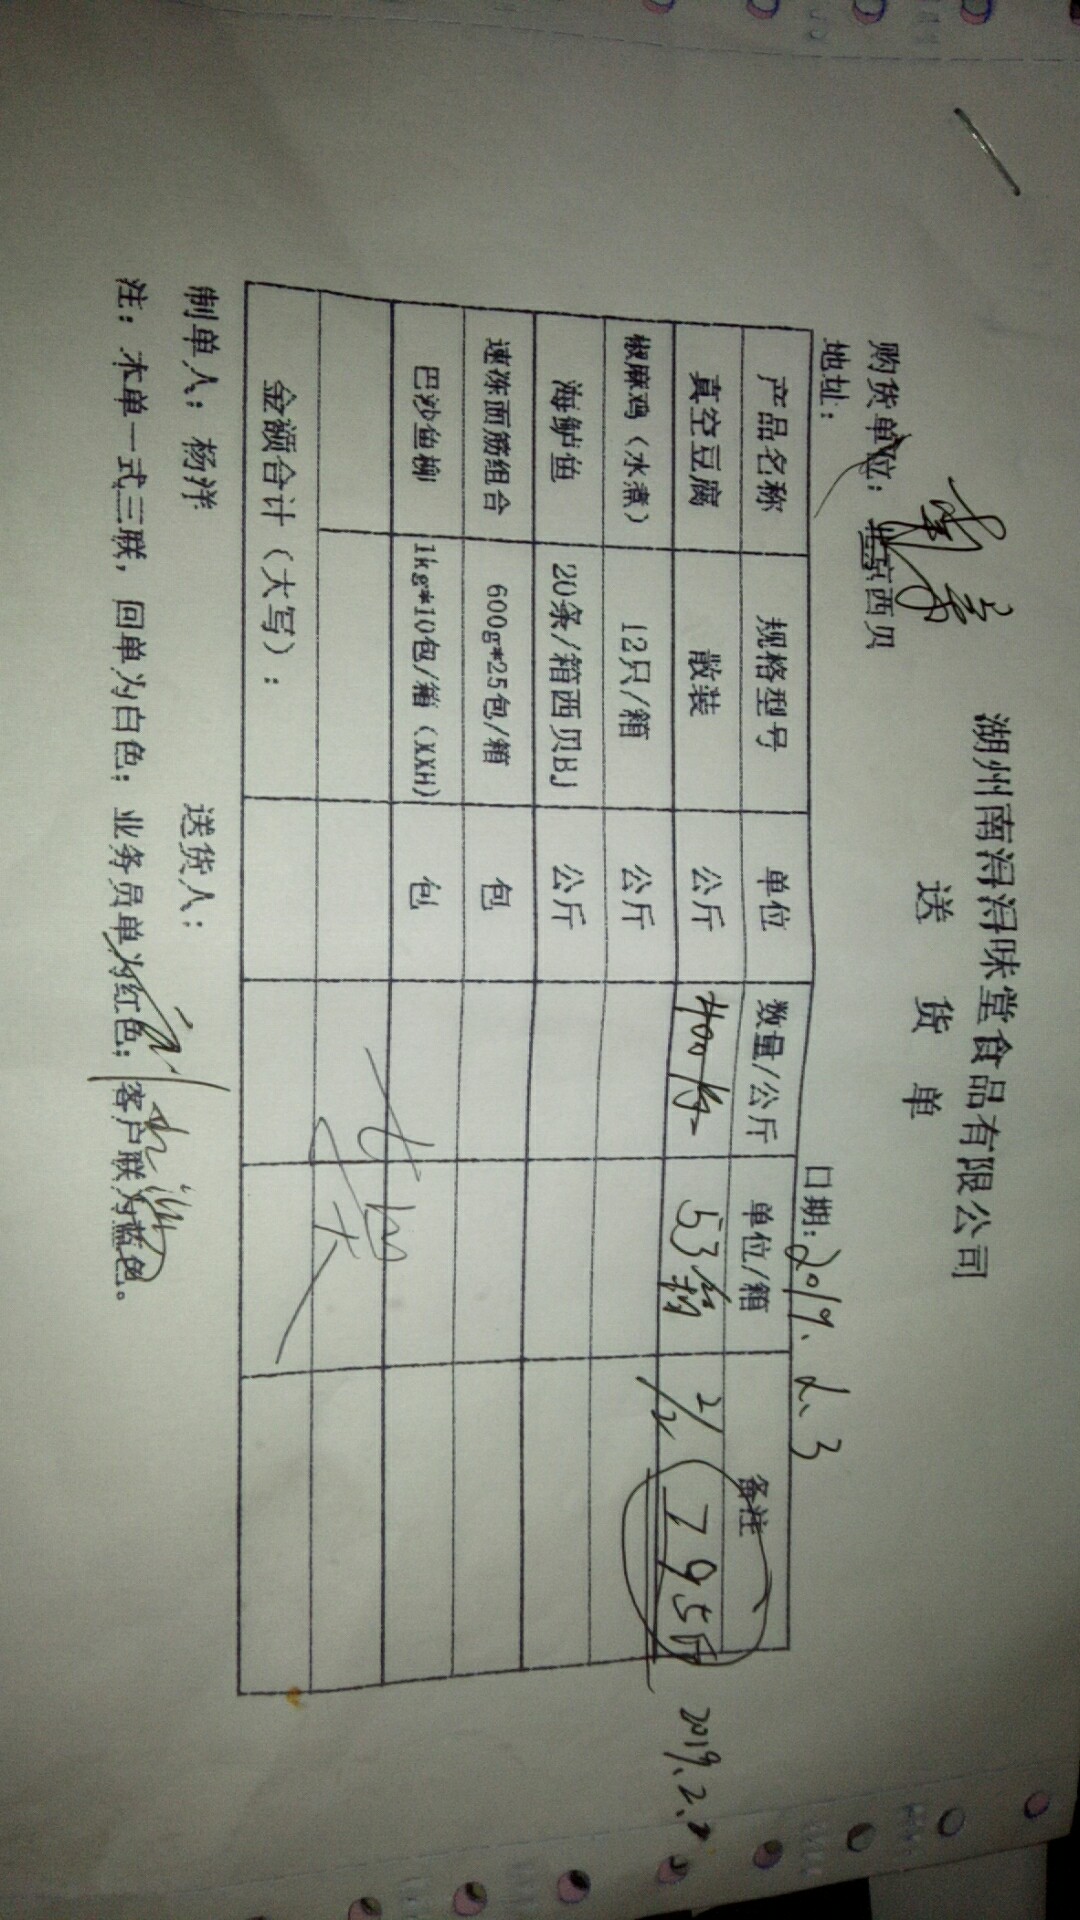 湖州南浔浔味堂食品有限公司
送 货 单
购货单位：北京西贝
地址：
日期：2019.2.3
产品名称 规格型号 单位 数量/公斤 单位/箱 备注
真空豆腐 散装 公斤 400 53箱 2/2 795斤 2019.2.2
椒麻鸡（水煮） 12只/箱 公斤
海鲈鱼 20条/箱西贝BJ 公斤
速冻面筋组合 600g*25包/箱 包
巴沙鱼柳 1kg*10包/箱（XXH） 包
金额合计（大写）：
制单人：杨洋 送货人：
注：本单一式三联，回单为白色；业务员单为红色；客户联为蓝色。